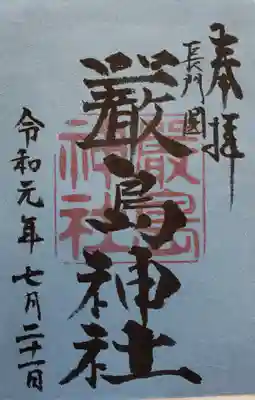 奉拝
長門國
厳島神社
嚴島神社
令和元年七月二十一日